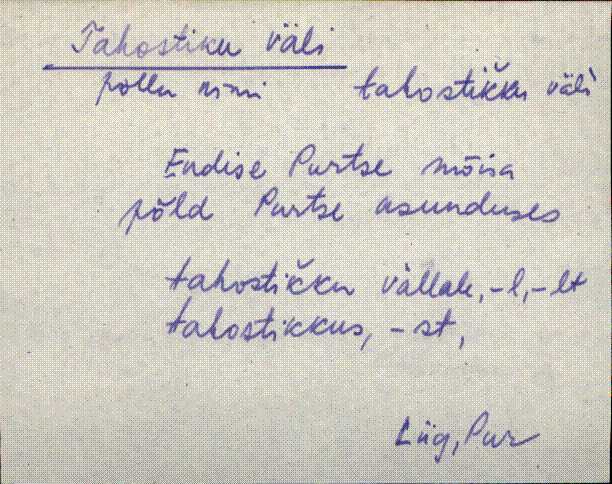 Tahostiku väli
põllu nimi tahostik̆ku väli
Endise Purtse mõisa
põld Purtse asunduses
tahostik̆ku vällale, -l, -lt
tahostikkus, -st,
Lüg, Pur